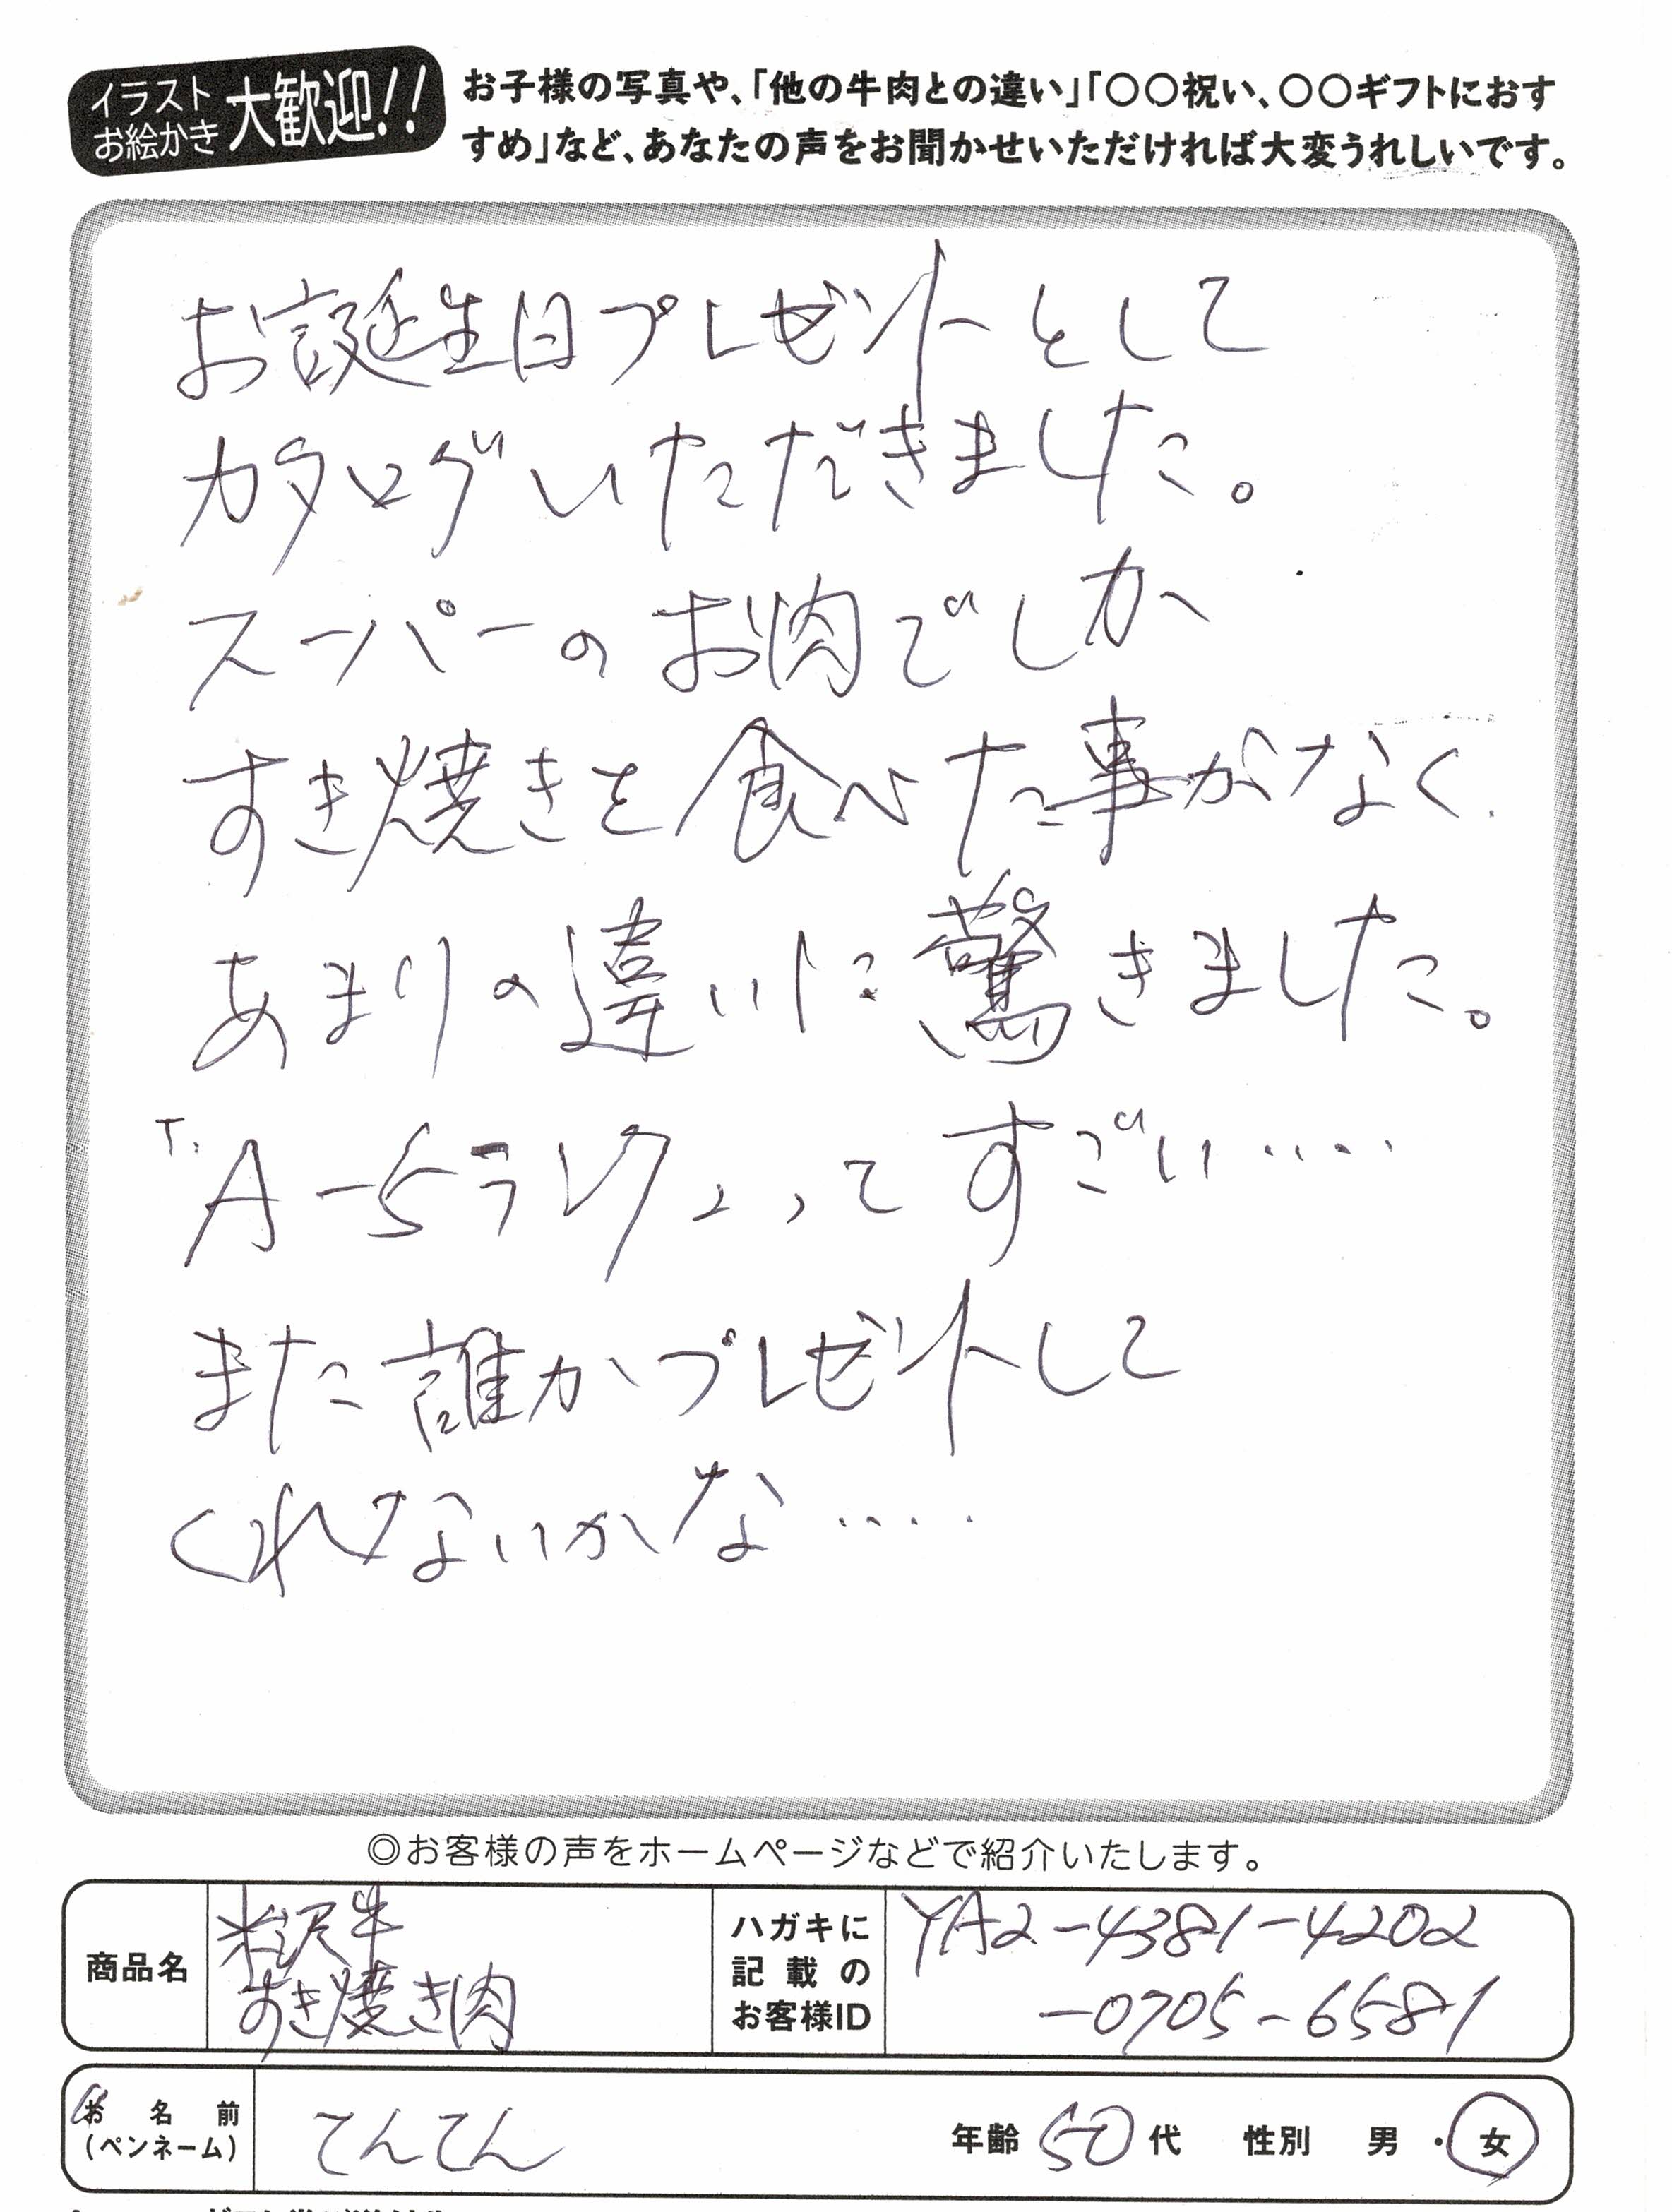 イラスト
お絵かき
大歓迎!!
お子様の写真や、「他の牛肉との違い」「〇〇祝い、〇〇ギフトにおす
すめ」など、あなたの声をお聞かせいただければ大変うれしいです。
お誕生日プレゼントとして
カタログいただきました。
スーパーのお肉でしか
すき焼きを食べた事がなく、
あまりの違いに驚きました。
"A-5ランク"ってすごい‥‥
また誰かプレゼントして
くれないかな‥‥
◎お客様の声をホームページなどで紹介いたします。
商品名
米沢牛
すき焼き肉
ハガキに
記載の
お客様ID
YA2-4381-4202
-0705-6581
お名前
(ペンネーム)
てんてん
年齢 50代 性別 男・女